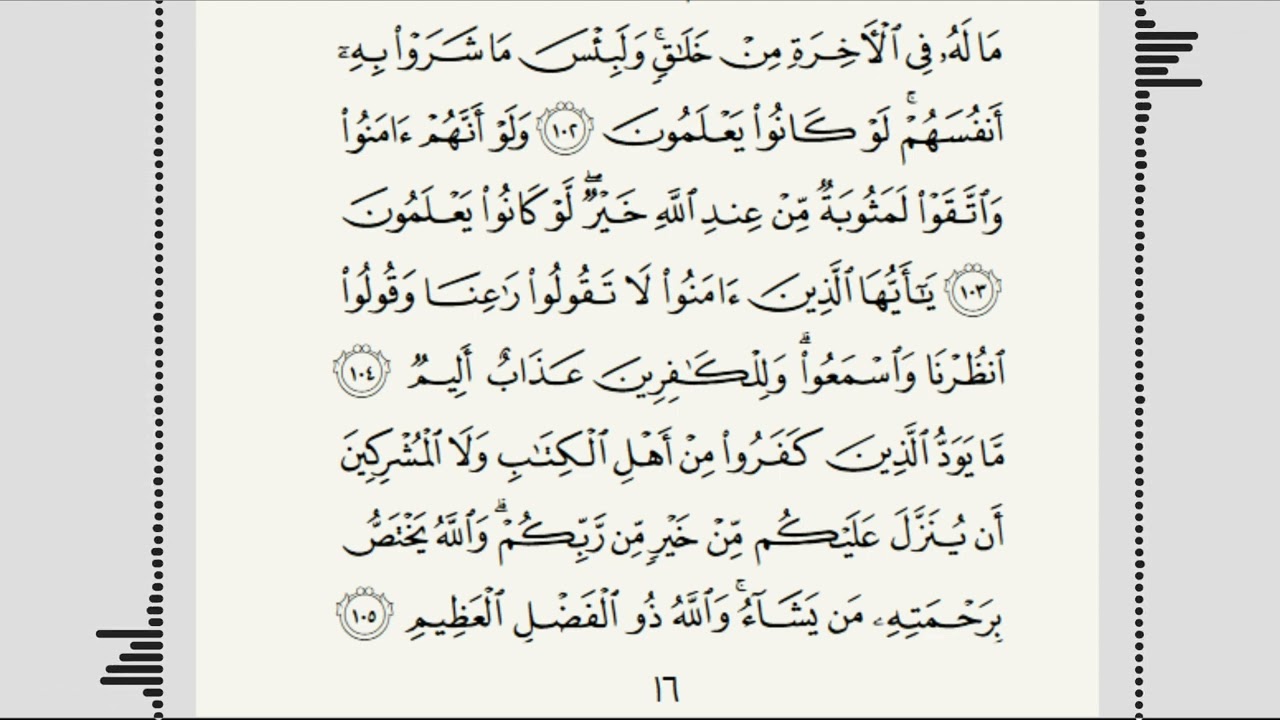 مَا لَهُۥ فِى ٱلْـَٔاخِرَةِ مِنْ خَلَـٰقٍۢ ۚ وَلَبِئْسَ مَا شَرَوْا۟ بِهِۦٓ
أَنفُسَهُمْ ۚ لَوْ كَانُوا۟ يَعْلَمُونَ ١٠٢ وَلَوْ أَنَّهُمْ ءَامَنُوا۟
وَٱتَّقَوْا۟ لَمَثُوبَةٌۭ مِّنْ عِندِ ٱللَّهِ خَيْرٌۭ ۖ لَّوْ كَانُوا۟ يَعْلَمُونَ
١٠٣ يَـٰٓأَيُّهَا ٱلَّذِينَ ءَامَنُوا۟ لَا تَقُولُوا۟ رَٰعِنَا وَقُولُوا۟
ٱنظُرْنَا وَٱسْمَعُوا۟ ۗ وَلِلْكَـٰفِرِينَ عَذَابٌ أَلِيمٌۭ ١٠٤
مَّا يَوَدُّ ٱلَّذِينَ كَفَرُوا۟ مِنْ أَهْلِ ٱلْكِتَـٰبِ وَلَا ٱلْمُشْرِكِينَ
أَن يُنَزَّلَ عَلَيْكُم مِّنْ خَيْرٍۢ مِّن رَّبِّكُمْ ۗ وَٱللَّهُ يَخْتَصُّ
بِرَحْمَتِهِۦ مَن يَشَآءُ ۚ وَٱللَّهُ ذُو ٱلْفَضْلِ ٱلْعَظِيمِ ١٠٥
١٦